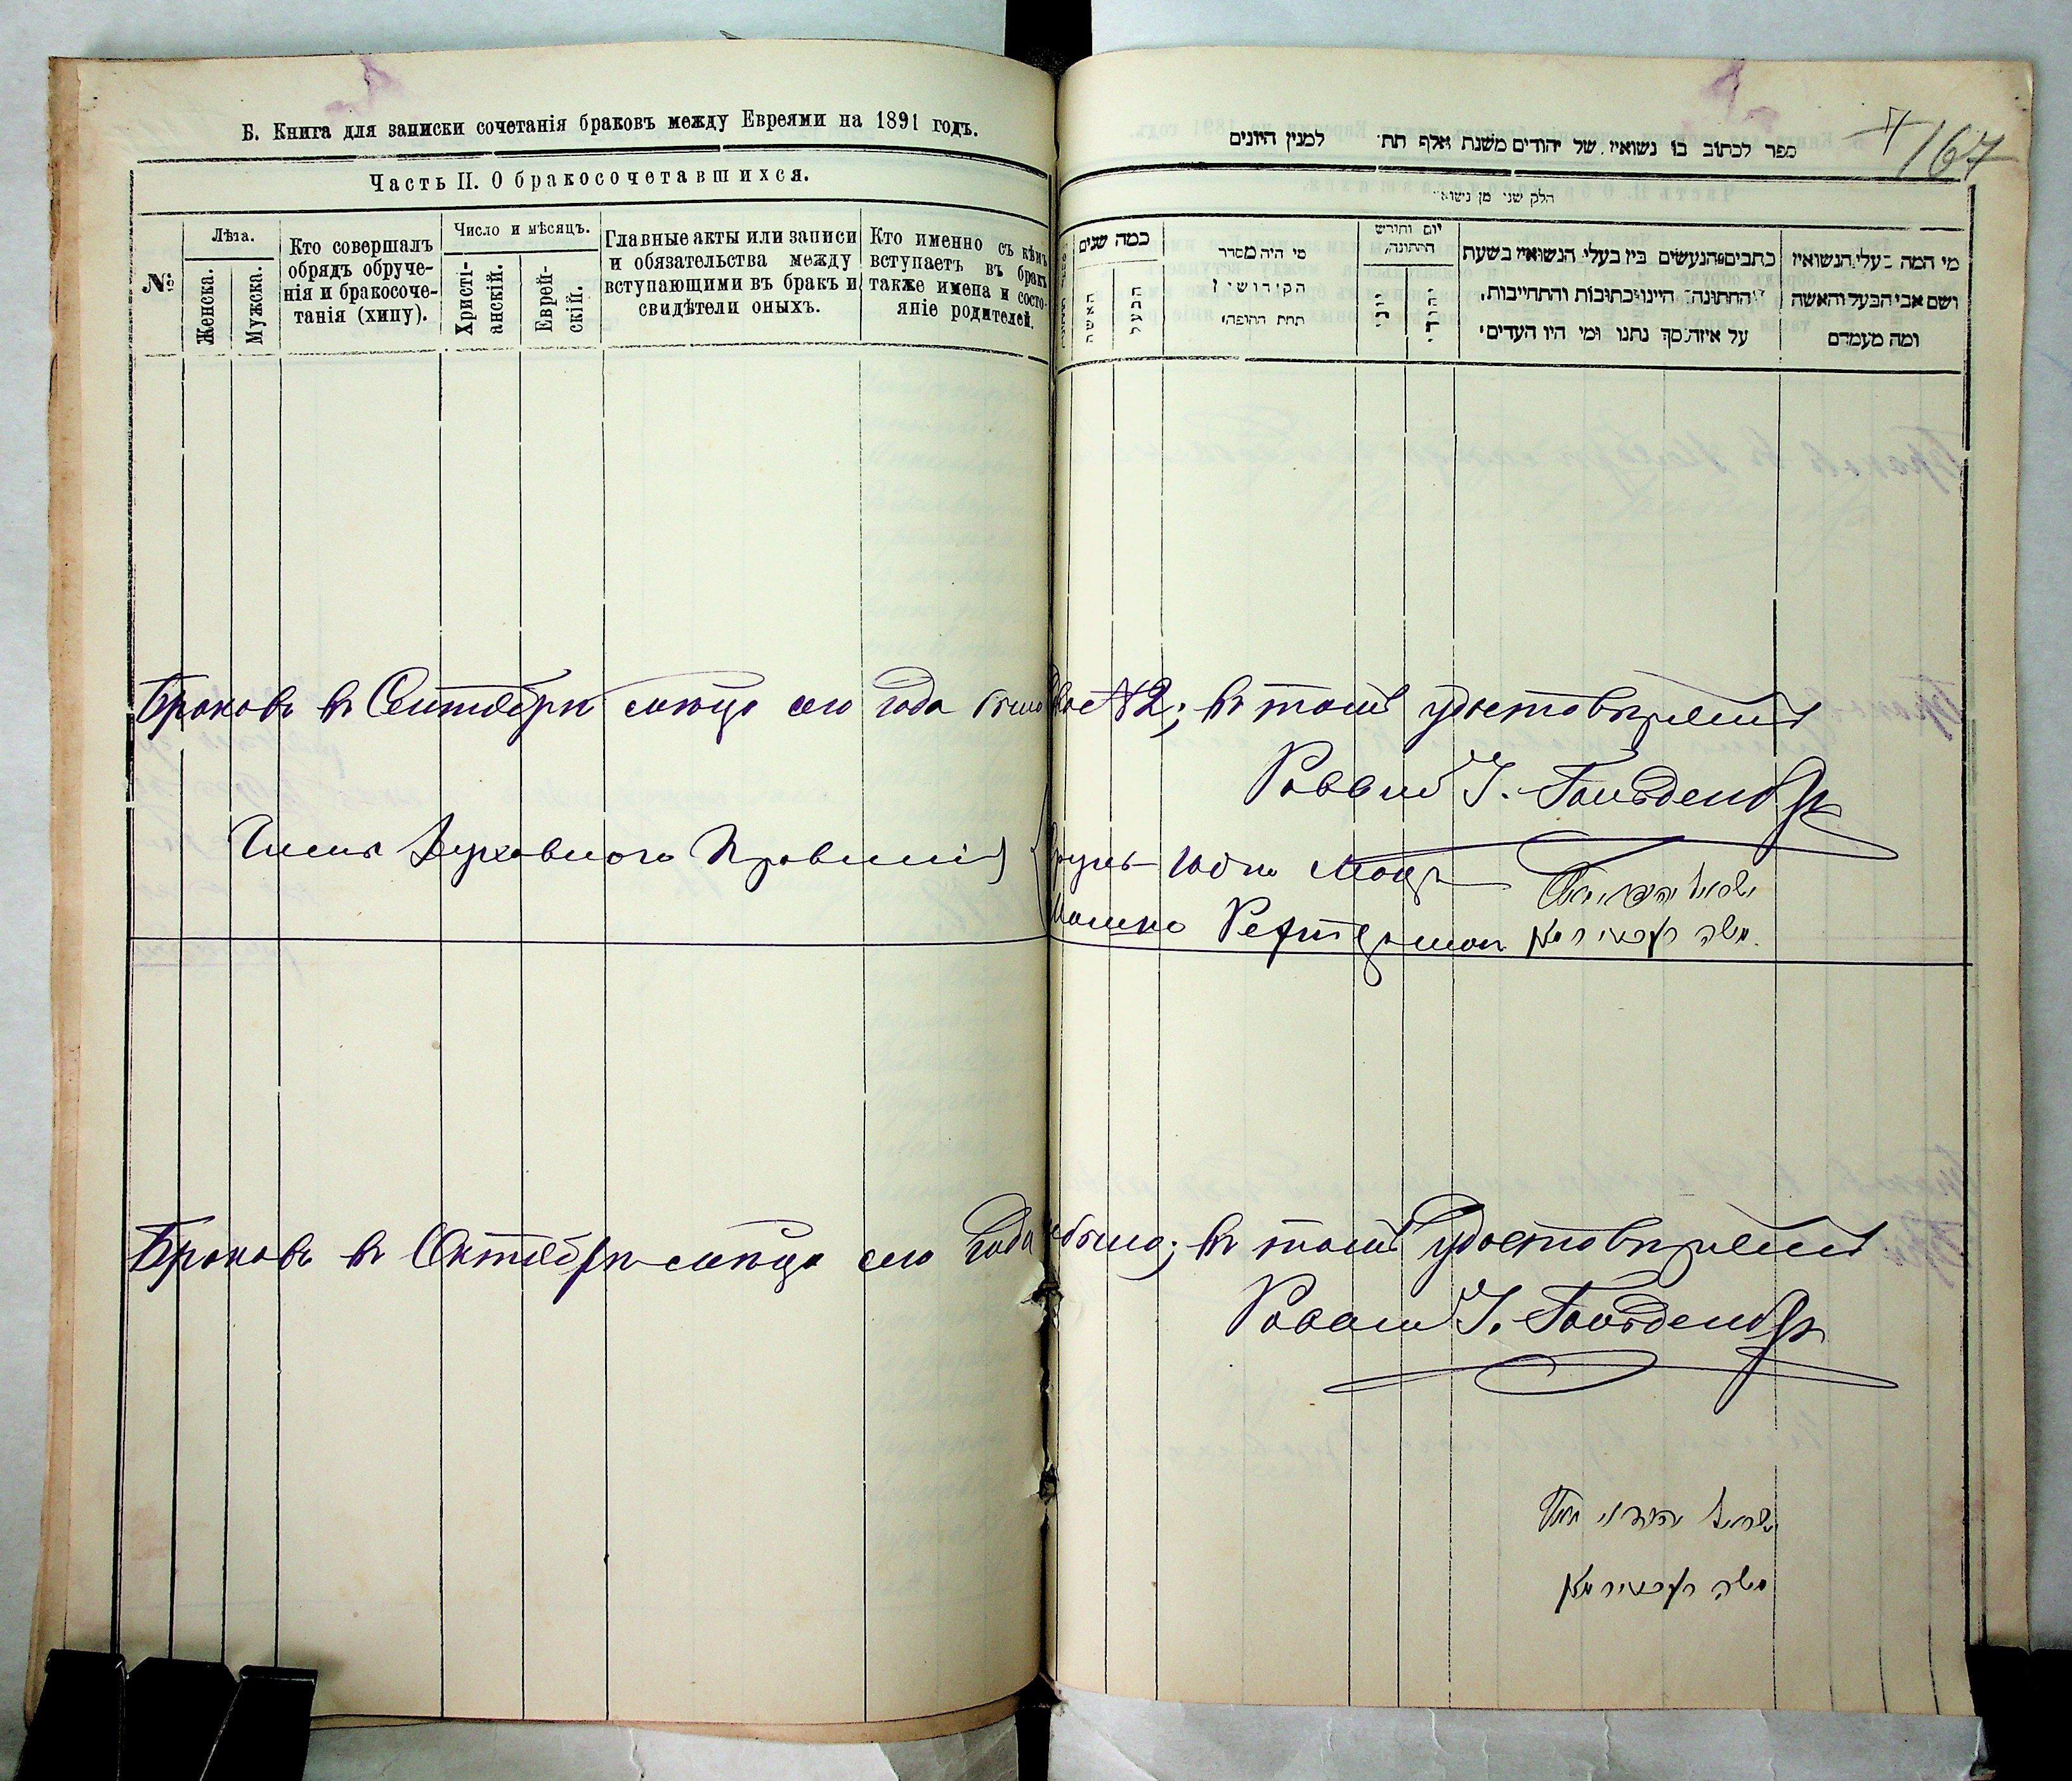 Б. Книга для записки сочетанія браковъ между Евреями на 1891 годъ.
Часть II. О бракосочетавшихся.
№
Лѣта.
Женска.
Мужска.
Кто совершалъ
обрядъ обруче-
нія и бракосоче-
танія (хипу).
Число и мѣсяцъ.
Христі-
анскій.
Еврей-
скій.
Главные акты или записи
и обязательства между
вступающими въ бракъ и
свидѣтели оныхъ.
Кто именно съ кѣмъ
вступаетъ въ бракъ
также имена и состо-
яніе родителей.
167
ספר לכתוב בו נשואין של יהודים משנת אלף תת למנין היונים
חלק שני מן נישואין
כמה שנים
האשה
הבעל
מי היה מסדר
הקידושין
תחת החופה
יום וחודש
החתונה
יוני
יהודי
כתבים הנעשים בין בעלי הנשואין בשעת
החתונה היינו כתובות והתחייבות,
על איזה סך נתנו ומי היו העדים
מי המה בעלי הנשואין
ושם אבי הבעל והאשה
ומה מעמדם
Браковъ въ Сентябрѣ мѣсяцѣ сего года было два №2; въ томъ удостовѣряемъ
Раввинъ І. Гольденбергъ
Члены Духовнаго Правленія
משה
Браковъ въ Октябрѣ мѣсяцѣ сего года не было; въ томъ удостовѣряемъ
Раввинъ І. Гольденбергъ
משה